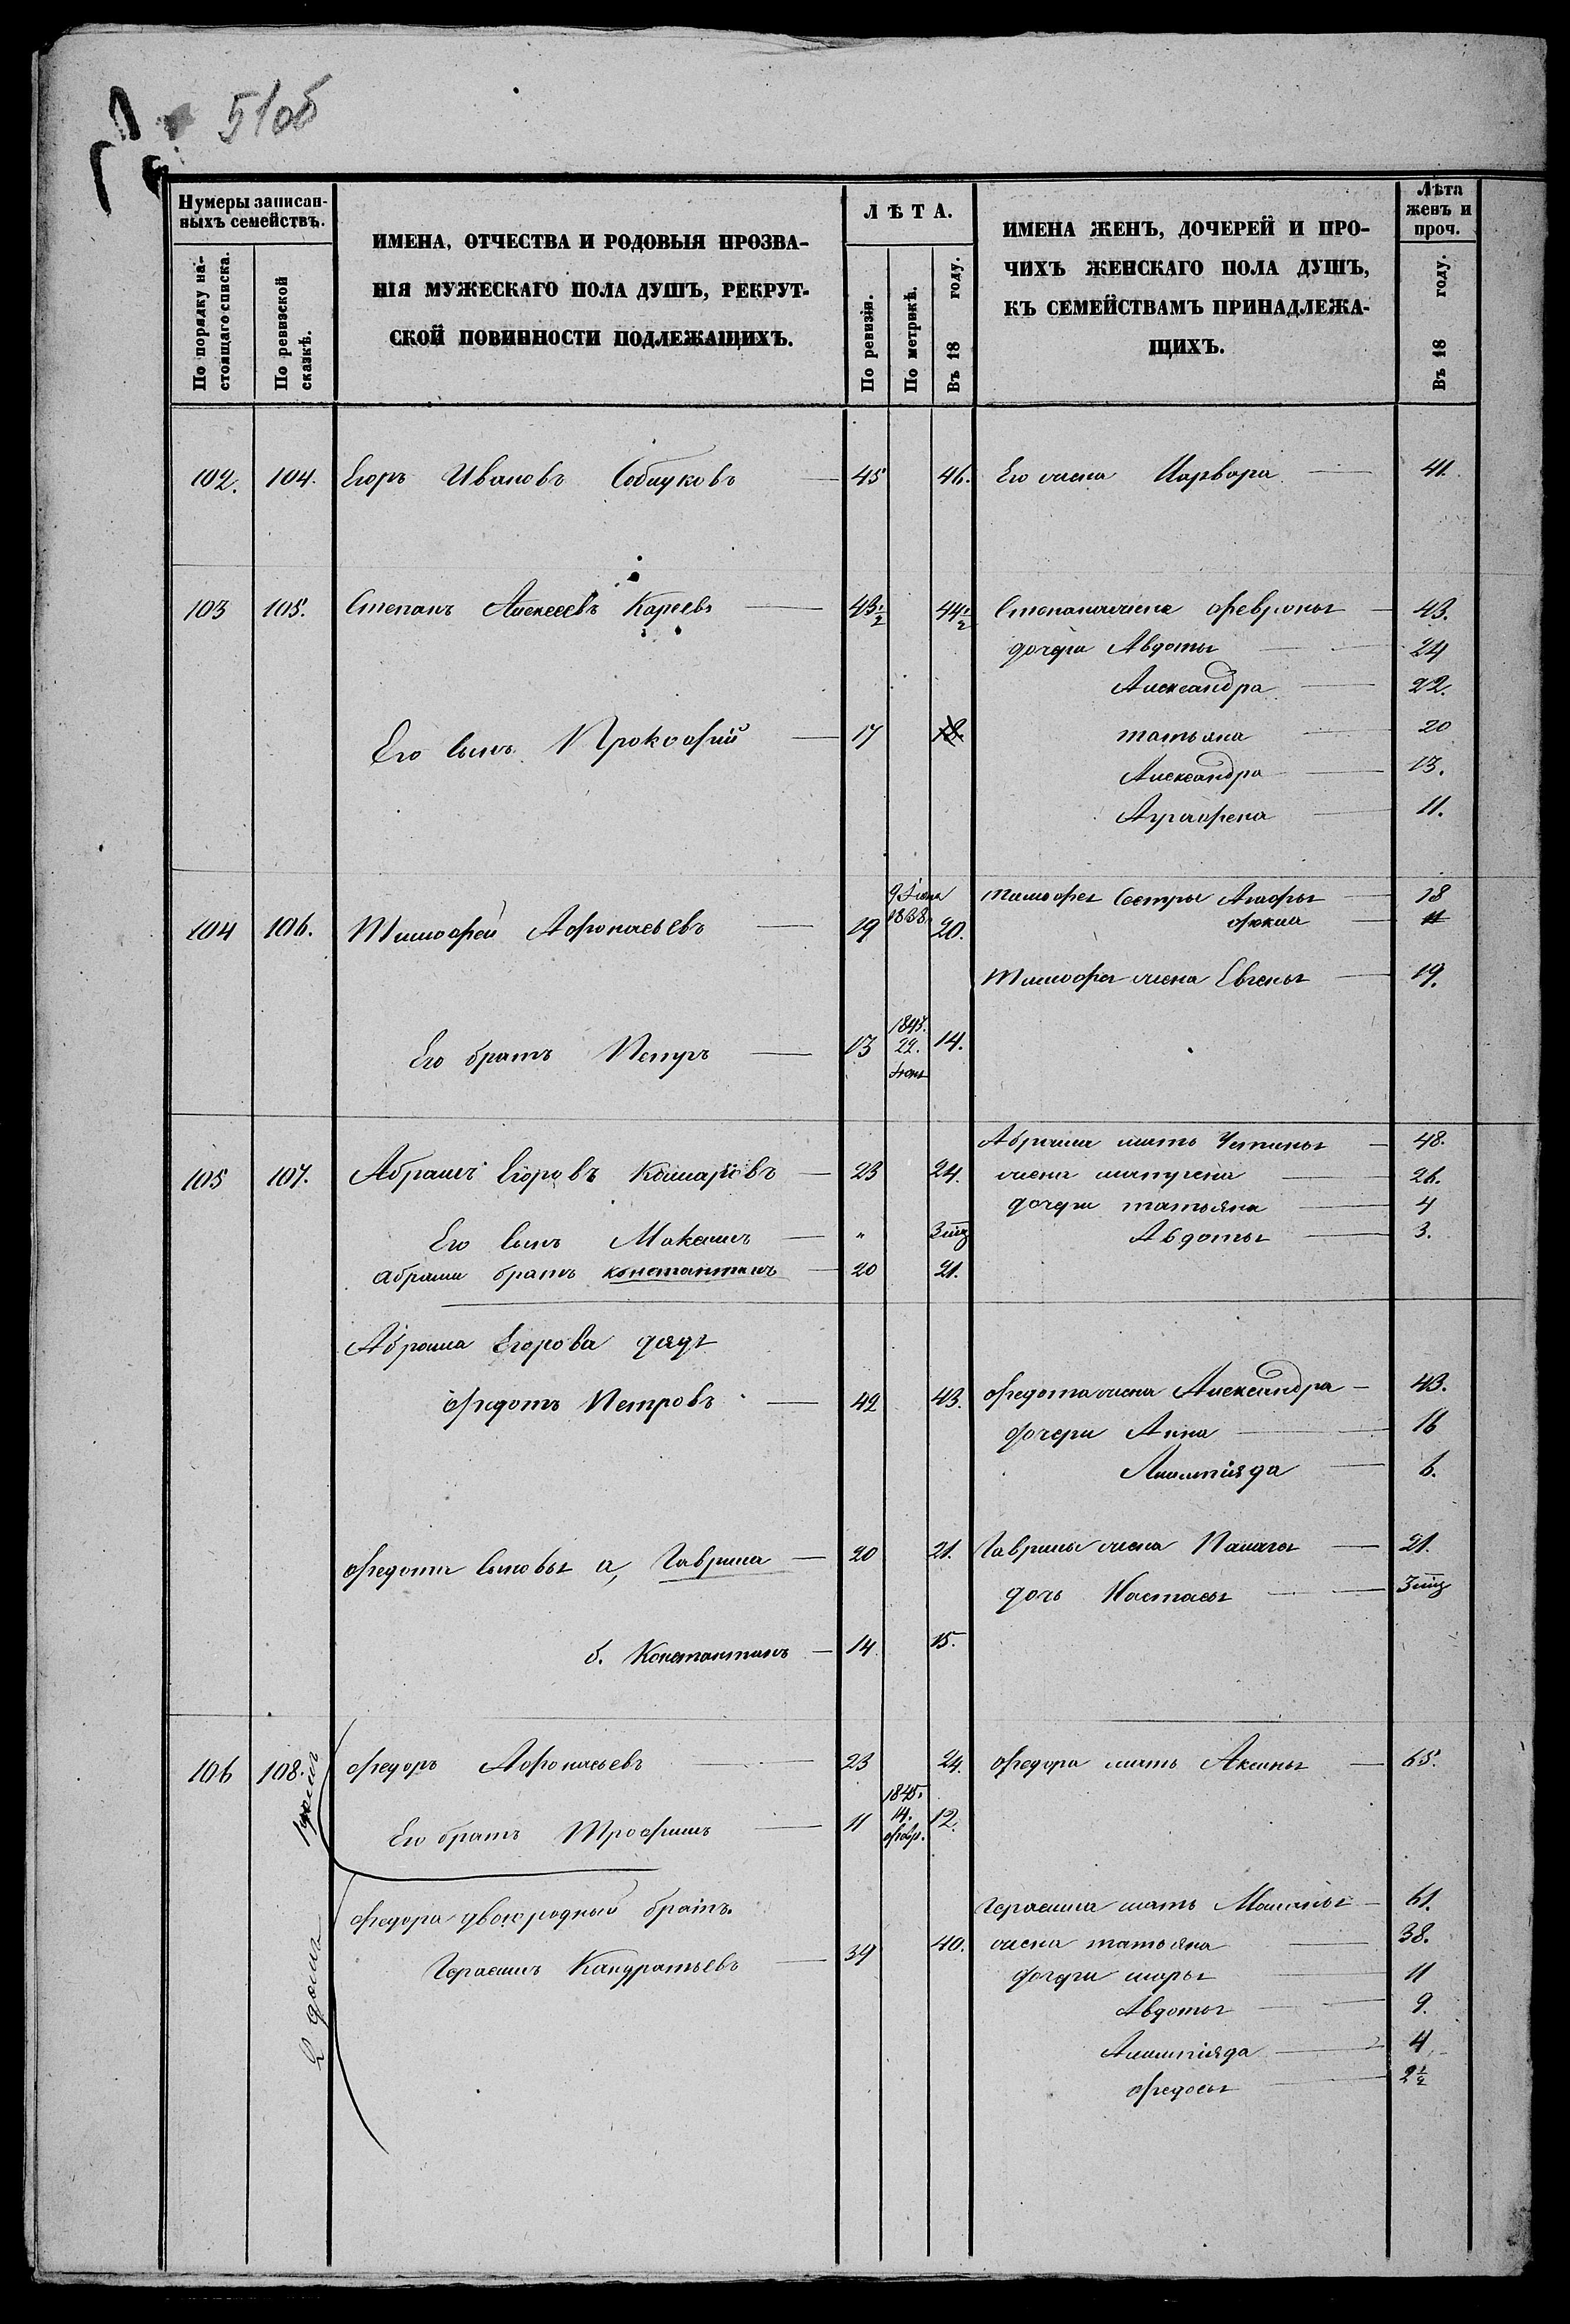 51об
Нумеры записан-
ныхъ семействъ.
По порядку на-
стоящаго списка.
По ревизской
сказкѣ.
ИМЕНА, ОТЧЕСТВА И РОДОВЫЯ ПРОЗВА-
НІЯ МУЖЕСКАГО ПОЛА ДУШЪ, РЕКРУТ-
СКОЙ ПОВИННОСТИ ПОДЛЕЖАЩИХЪ.
ЛѢТА.
По ревизіи.
По метрикѣ.
Въ 18 году.
ИМЕНА ЖЕНЪ, ДОЧЕРЕЙ И ПРО-
ЧИХЪ ЖЕНСКАГО ПОЛА ДУШЪ,
КЪ СЕМЕЙСТВАМЪ ПРИНАДЛЕЖА-
ЩИХЪ.
Лѣта
женъ и
проч.
Въ 18 году.
102. 104. Егоръ Ивановъ 45 46. Его жена Варвара 41.
103 105. Степанъ Алексеевъ Кареевъ 43½ 44½ Степана жена Февронья 43.
дочери Авдотья 24
Александра 22.
Его сынъ Прокофий 17 18. татьяна 20
Александра 13.
Аграфена 11.
104 106. Тимофей Афонасьевъ 19 9 Іюня 1838 20. Тимофея Сестры Агафья 18
фекла 11
Тимофея жена Евгенья 19.
Его братъ Петръ 13 1843. 22. 14.
105 107. Абрамъ Егоровъ Комаровъ 23 24. Абрама мать Устинья 48.
жена матрена 26.
дочери татьяна 4
Его сынъ Максимъ " 3 мѣ Авдотья 3.
абрама братъ константинъ 20 21.
Абрама Егорова дядя
Федотъ Петровъ 42 43. Федота жена Александра 43.
дочери Анна 16
Алимпіяда 6.
Федота сыновья а, Гаврила 20 21. Гаврилы жена Палагея 21.
дочь Настасья 3 мѣ
б. Константинъ 14 15.
106 108. 1 домъ Федоръ Афонасьевъ 23 24. Федора мать Аксинья 65.
Его братъ Трофимъ 11 1845. 14. февр. 12.
2 домъ Федора двоюродный братъ Герасима мать Маланья 61.
Герасимъ Кандратьевъ 39 40. жена татьяна 38.
дочери марья 11
Авдотья 9.
Алимпіяда 4
федосья 2½